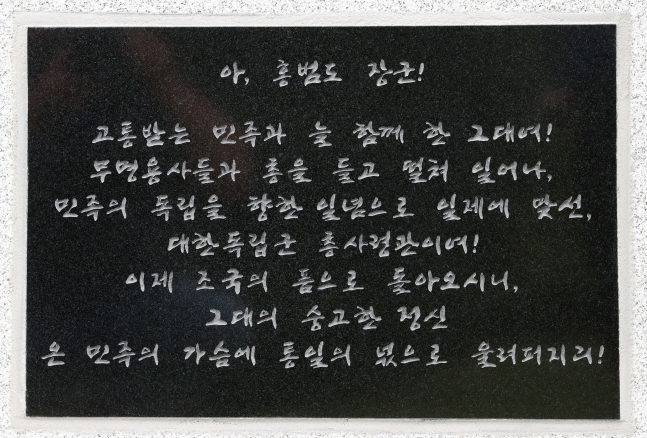 아, 홍범도 장군!
고통받는 민족과 늘 함께 한 그대여!
무명용사들과 총을 들고 떨쳐 일어나,
민족의 독립을 향한 일념으로 일제에 맞선,
대한독립군 총사령관이여!
이제 조국의 품으로 돌아오시니,
그대의 숭고한 정신
온 민족의 가슴에 통일의 넋으로 울려퍼지리!